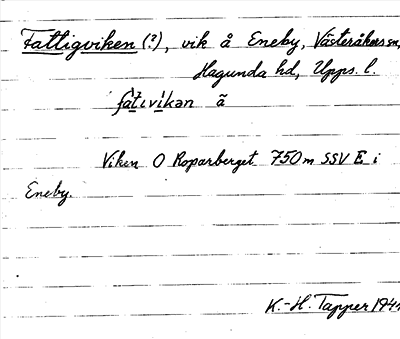 Fattigviken (?), vik å Eneby, Västeråkers sn,
Hagunda hd, Upps. l.
fa`t`ivi`kan ã
Viken O Roparberget 750 m SSV E i
Eneby.
K.-H. Tapper